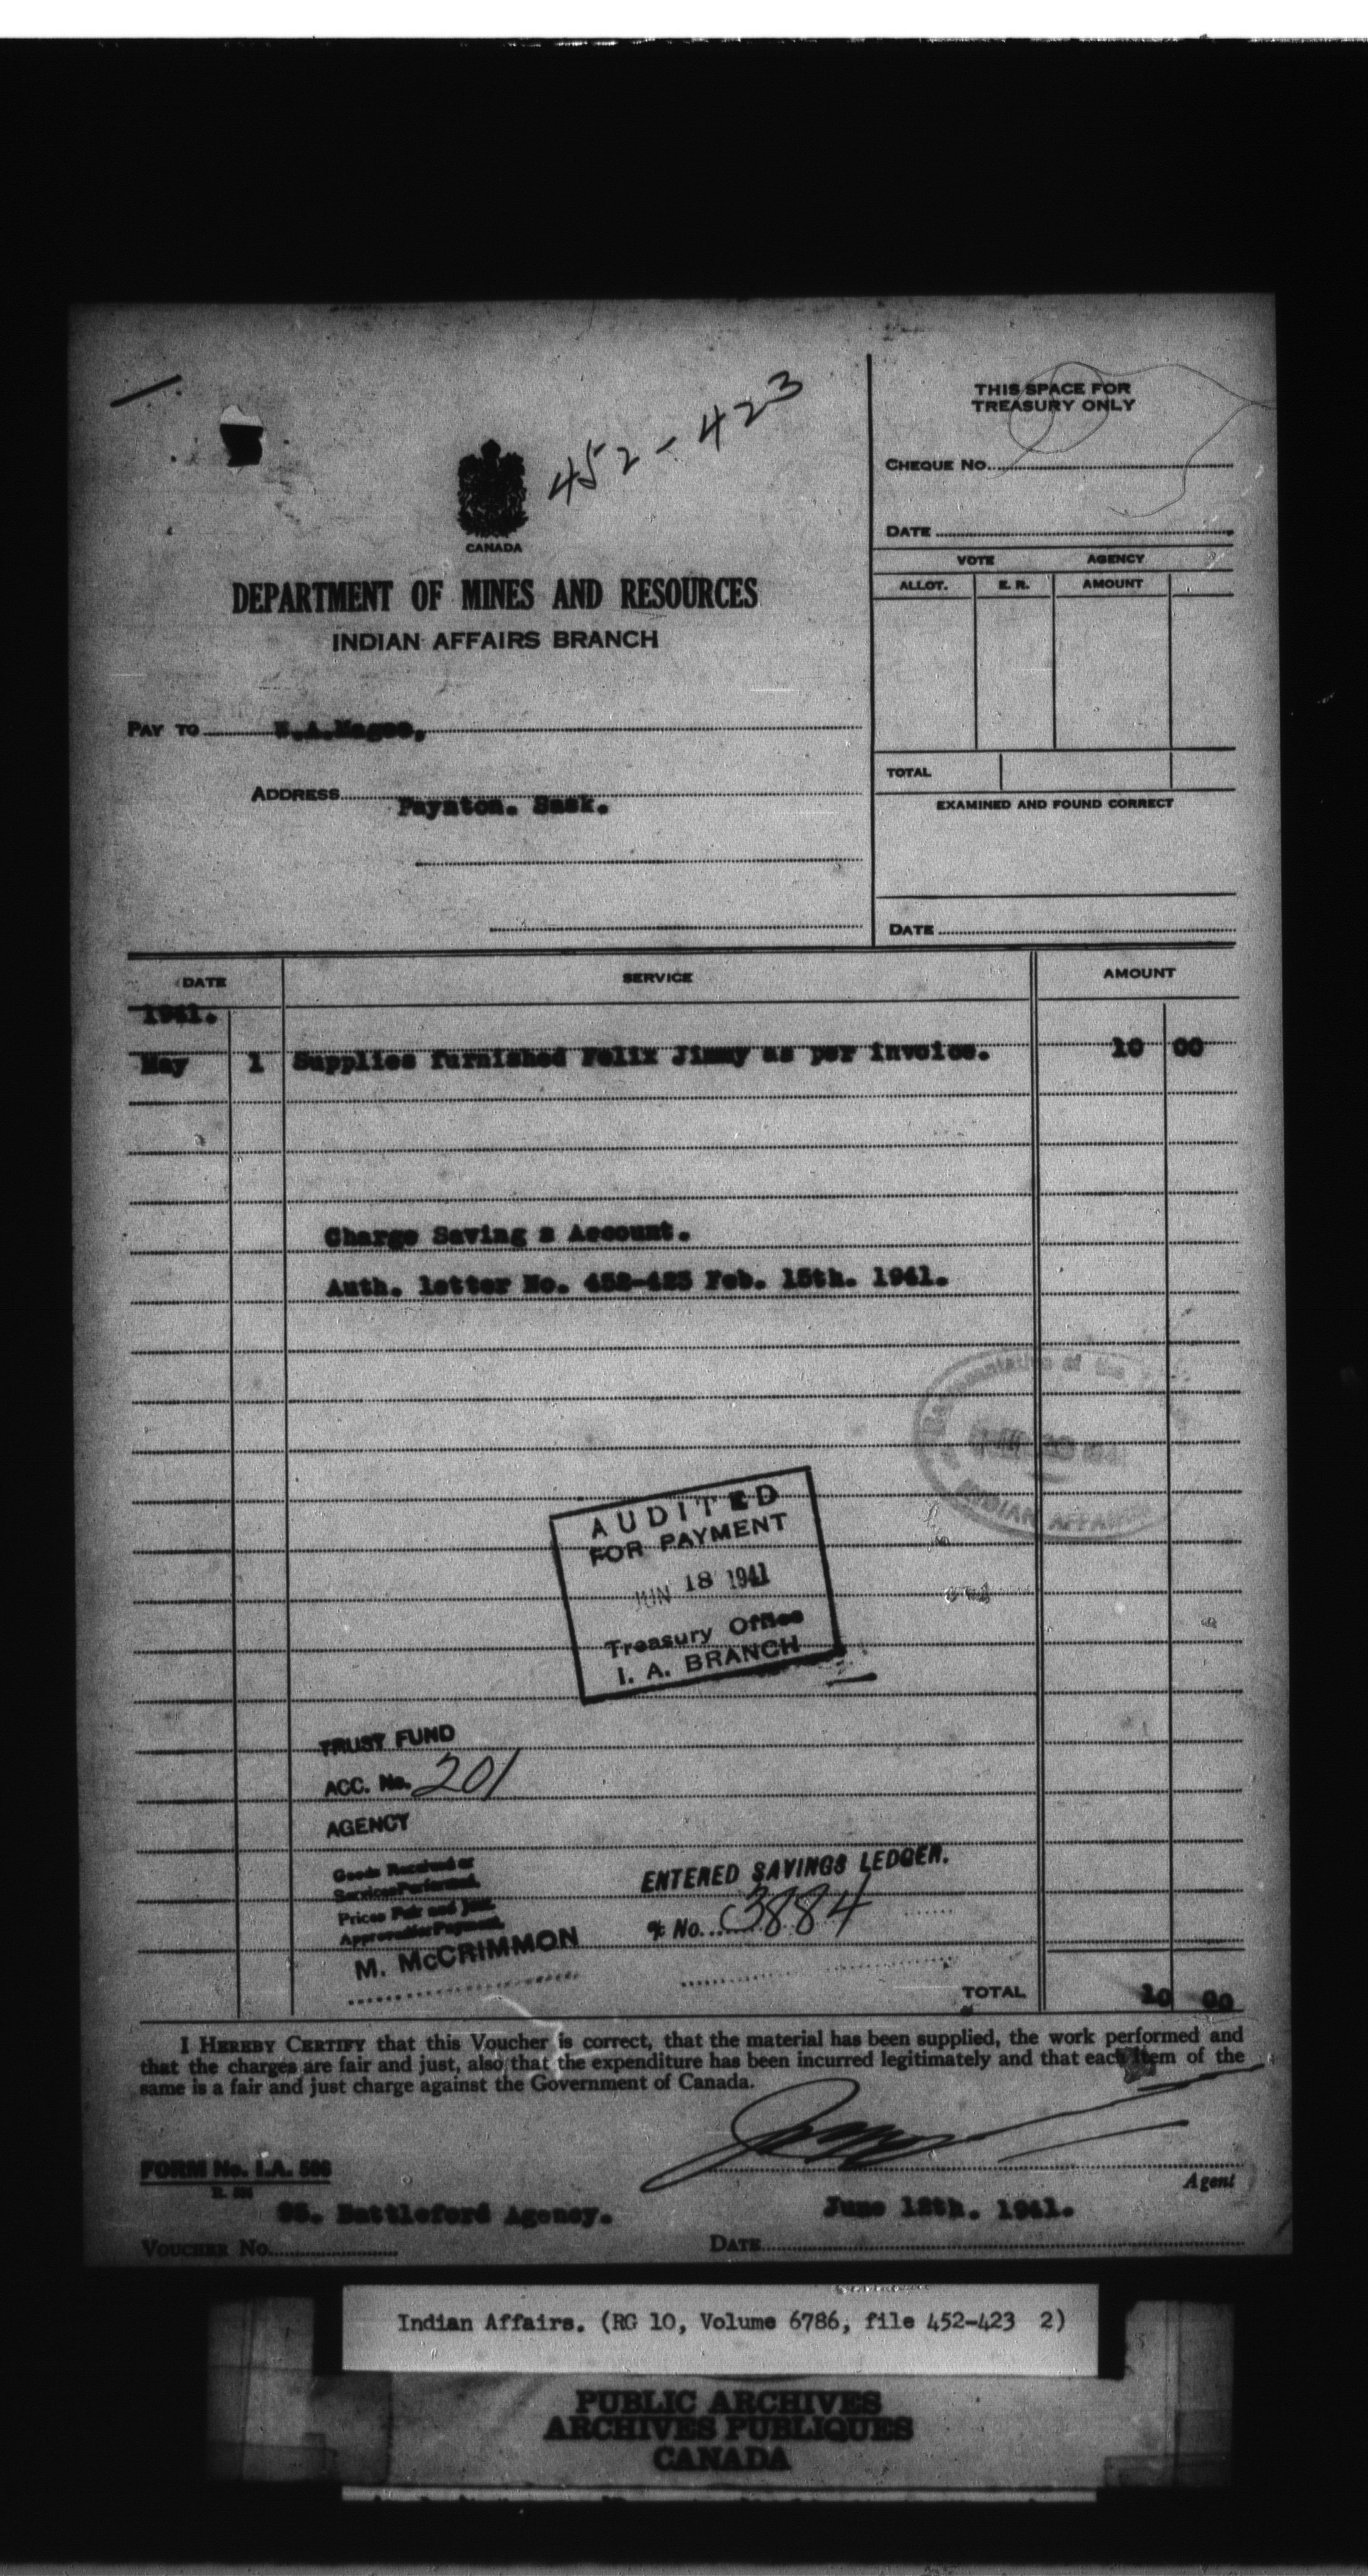 452-423
CANADA
DEPARTMENT OF MINES AND RESOURCES
INDIAN AFFAIRS BRANCH
PAY TO W.A.Magee,
ADDRESS Paynton. Sask.
THIS SPACE FOR
TREASURY ONLY
CHEQUE NO.
DATE
VOTE AGENCY
ALLOT. E. R. AMOUNT
TOTAL
EXAMINED AND FOUND CORRECT
DATE
DATE SERVICE AMOUNT
1941.
May 1 Supplies furnished Felix Jimmy as per invoice. 10 00
Charge Saving s Account.
Auth. letter No. 452-423 Feb. 15th. 1941.
Representative of the
INDIAN AFFAIRS
AUDITED
FOR PAYMENT
JUN 18 1941
Treasury Office
I. A. BRANCH
TRUST FUND
ACC. No. 201
AGENCY
Goods Received or
Services Performed.
Prices Fair and Just.
Approved for Payment.
M. McCRIMMON
ENTERED SAVINGS LEDGER.
% No. 3884
TOTAL 10 00
I HEREBY CERTIFY that this Voucher is correct, that the material has been supplied, the work performed and
that the charges are fair and just, also that the expenditure has been incurred legitimately and that each item of the
same is a fair and just charge against the Government of Canada.
Agent
FORM No. I.A. 506
Battleford Agency.
June 12th. 1941.
VOUCHER NO.
DATE
Indian Affairs. (RG 10, Volume 6786, file 452-423 2)
PUBLIC ARCHIVES
ARCHIVES PUBLIQUES
CANADA